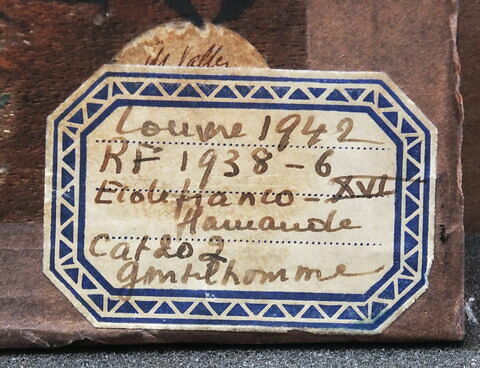 Vallee
Louvre 1942
RF 1938-6
Ecole franco-XVI
flamande
Cat 202
gentilhomme